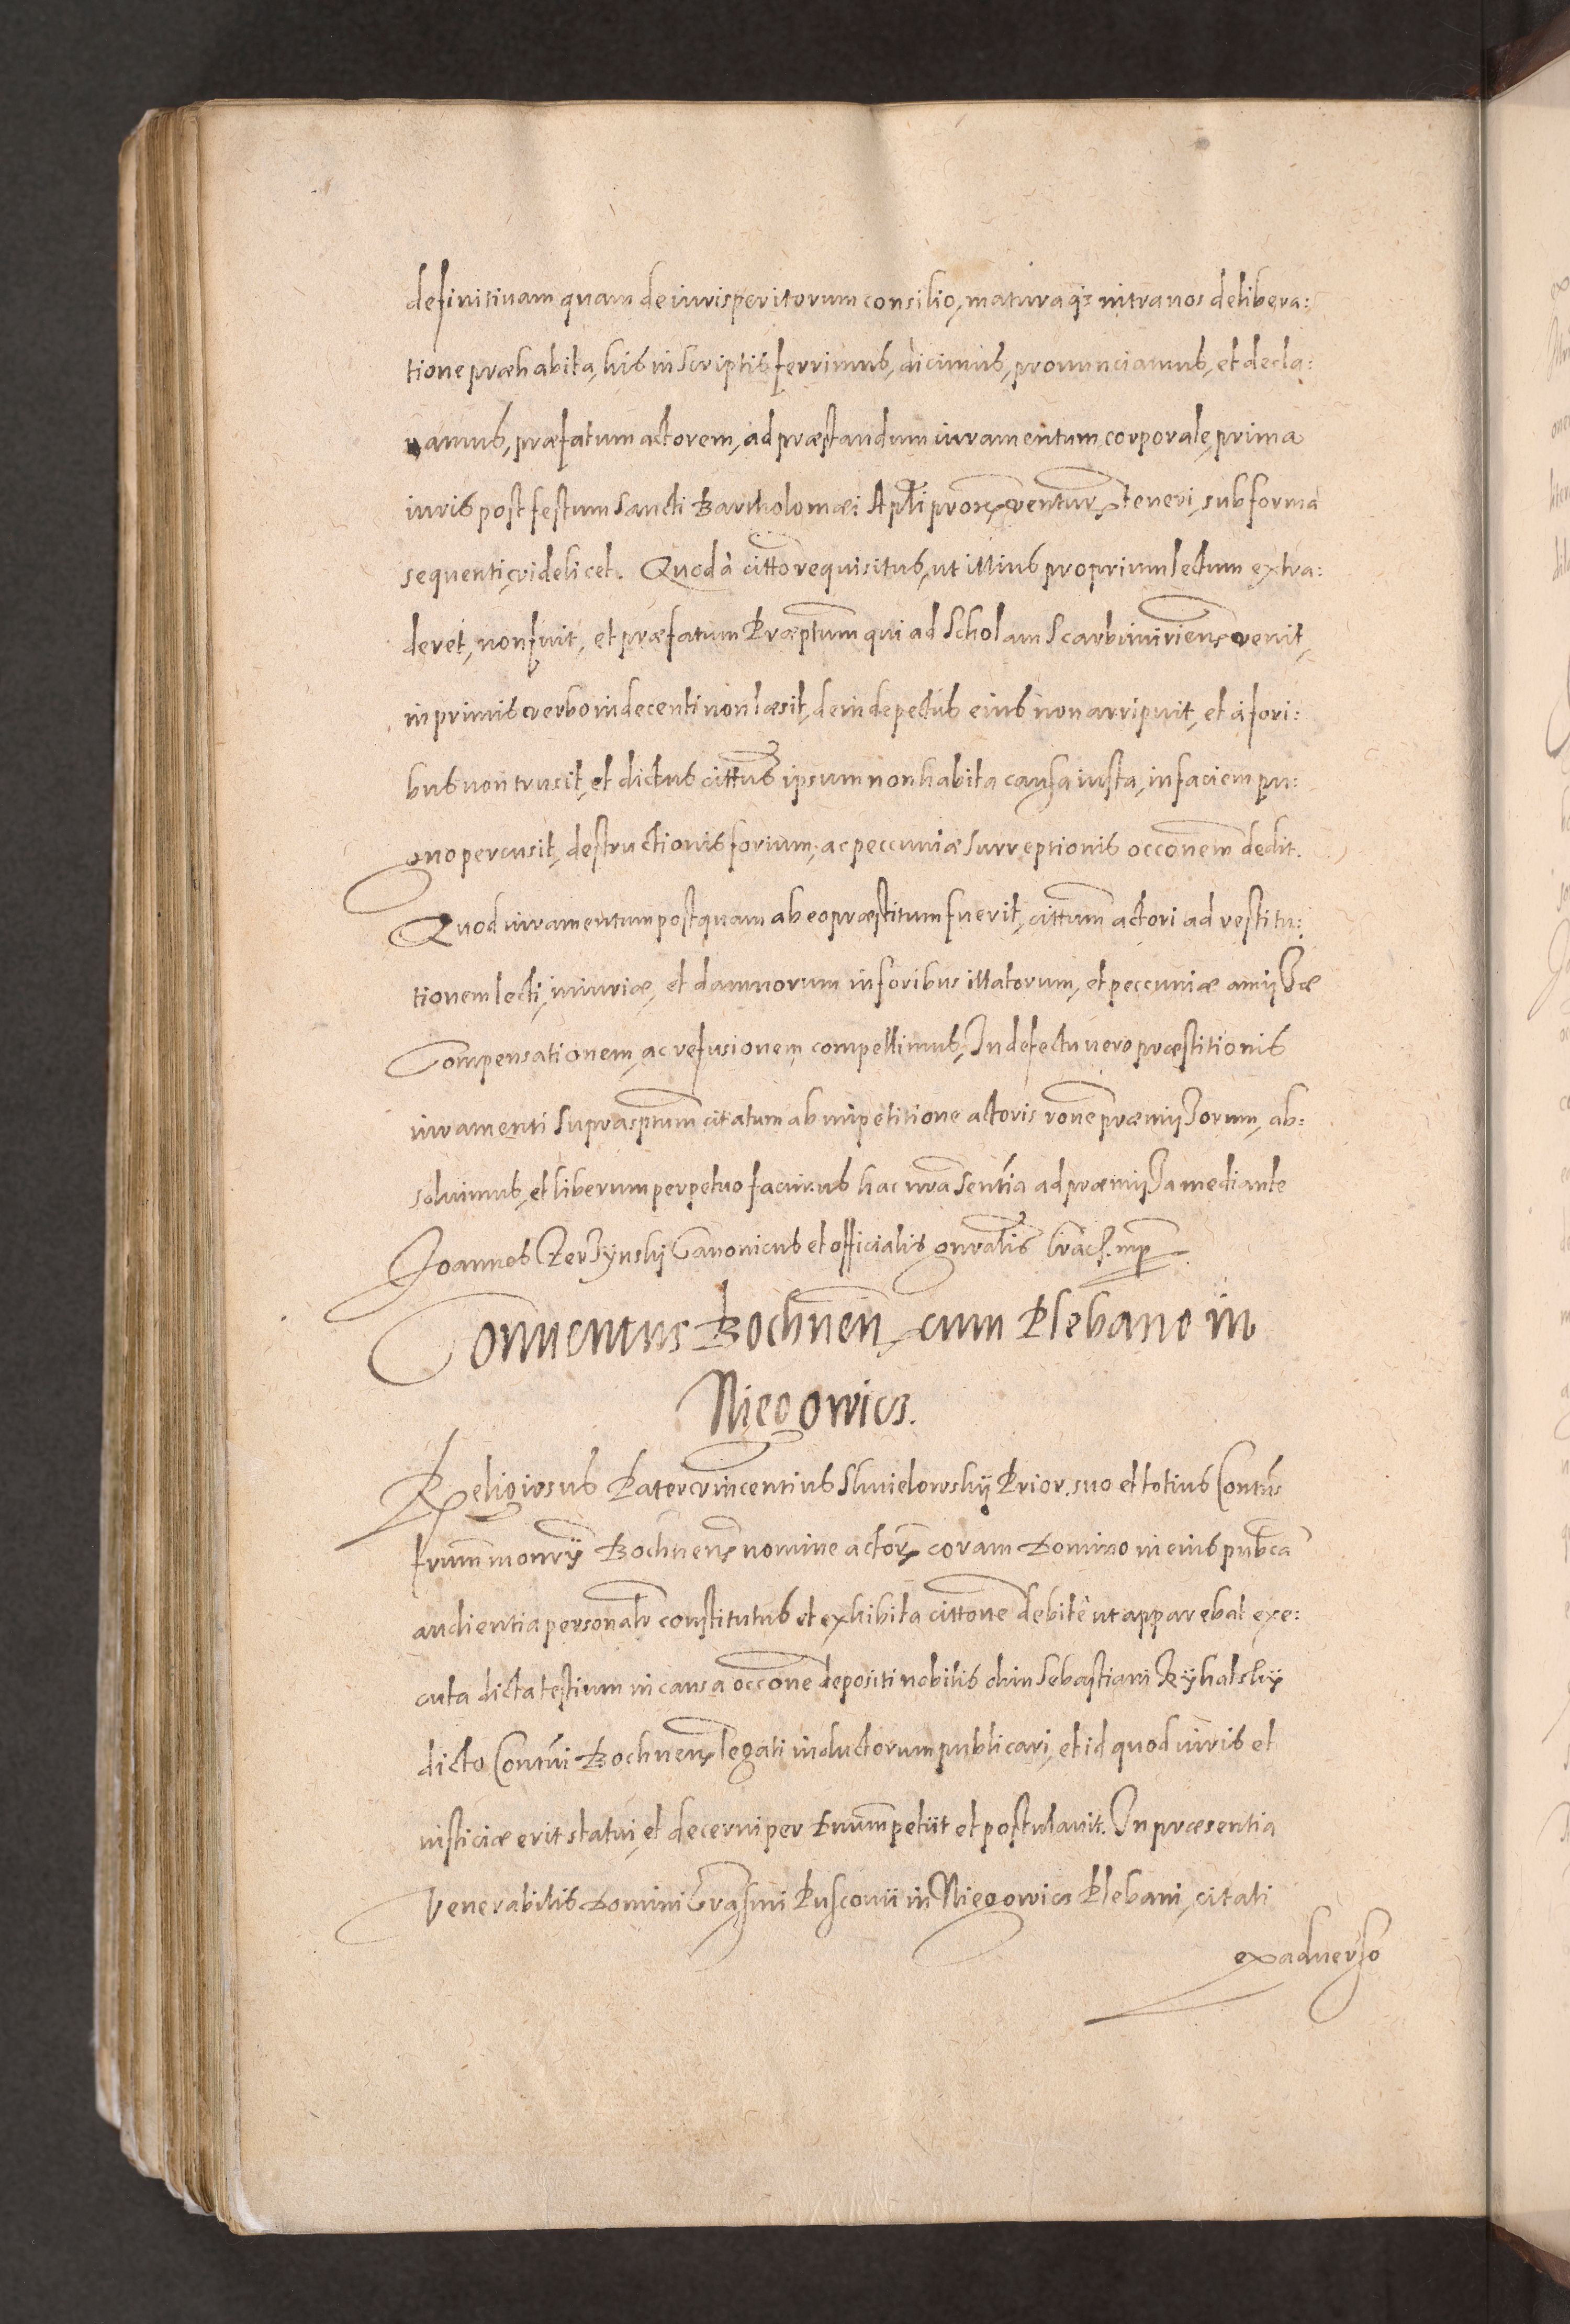 definitiuam quam de iurisperitorum consilio, maturaq3 intra nos delibera:
tione præhabita, his in scriptis ferrimus, dicimus, pronunciamus, et decla:
ramus, præfatum actorem, ad præstandum iuramentum corporale, prima
iuris post festum Sancti Bartholomæi Apłi prox ventur teneri, sub forma
sequenti, videlicet. Quod à citto requisitus, ut illius proprium lectum extra:
deret, non fuit, et præfatum Præptum qui ad Scholam Scarbimiriens venit,
in primis verbo indecenti non læsit, deinde pectus eius non arripuit, et à fori:
bus non trusit, et dictus cittus ipsum non habita causa iusta, in faciem pu:
gno percusit, destructionis forium, ac peccuniæ surreptionis occonem dedit.
Quod iuramentum postquam ab eo præstitum fuerit, cittum actori ad restitu:
tionem lecti, iniuriæ, et damnorum in foribus illatorum, et peccuniæ amissæ
Compensationem, ac refusionem compellimus, In defectu uero præstitionis
iuramenti suprasptum citatum ab impetitione actoris rone præmissorum, ab:
soluimus, et liberum perpetuo facimus hac nra sentia ad præmissa mediante
Joannes Canonicus et officialis gnralis Crac. mp
Conuentus Bochnen, cum Plebano in
Niegowics.
Religiosus Pater Vincentius Prior. suo et totius Contus
frum monrÿ Bochnens nomine actor coram Domino in eius pubca
audientia personalr constitutus et exhibita cittone debitè ut apparebat exe:
cuta dicta testium in causa occone depositi nobilis olim Sebastiani
dicto Contui Bochnens legati inductorum publicari, et id quod iuris et
iusticiæ erit statui, et decerni per Dnum petiit et postulauit. In præsentia
Venerabilis Domini Erasmi Pusconii in Niegowics Plebani, citati
ex aduerso